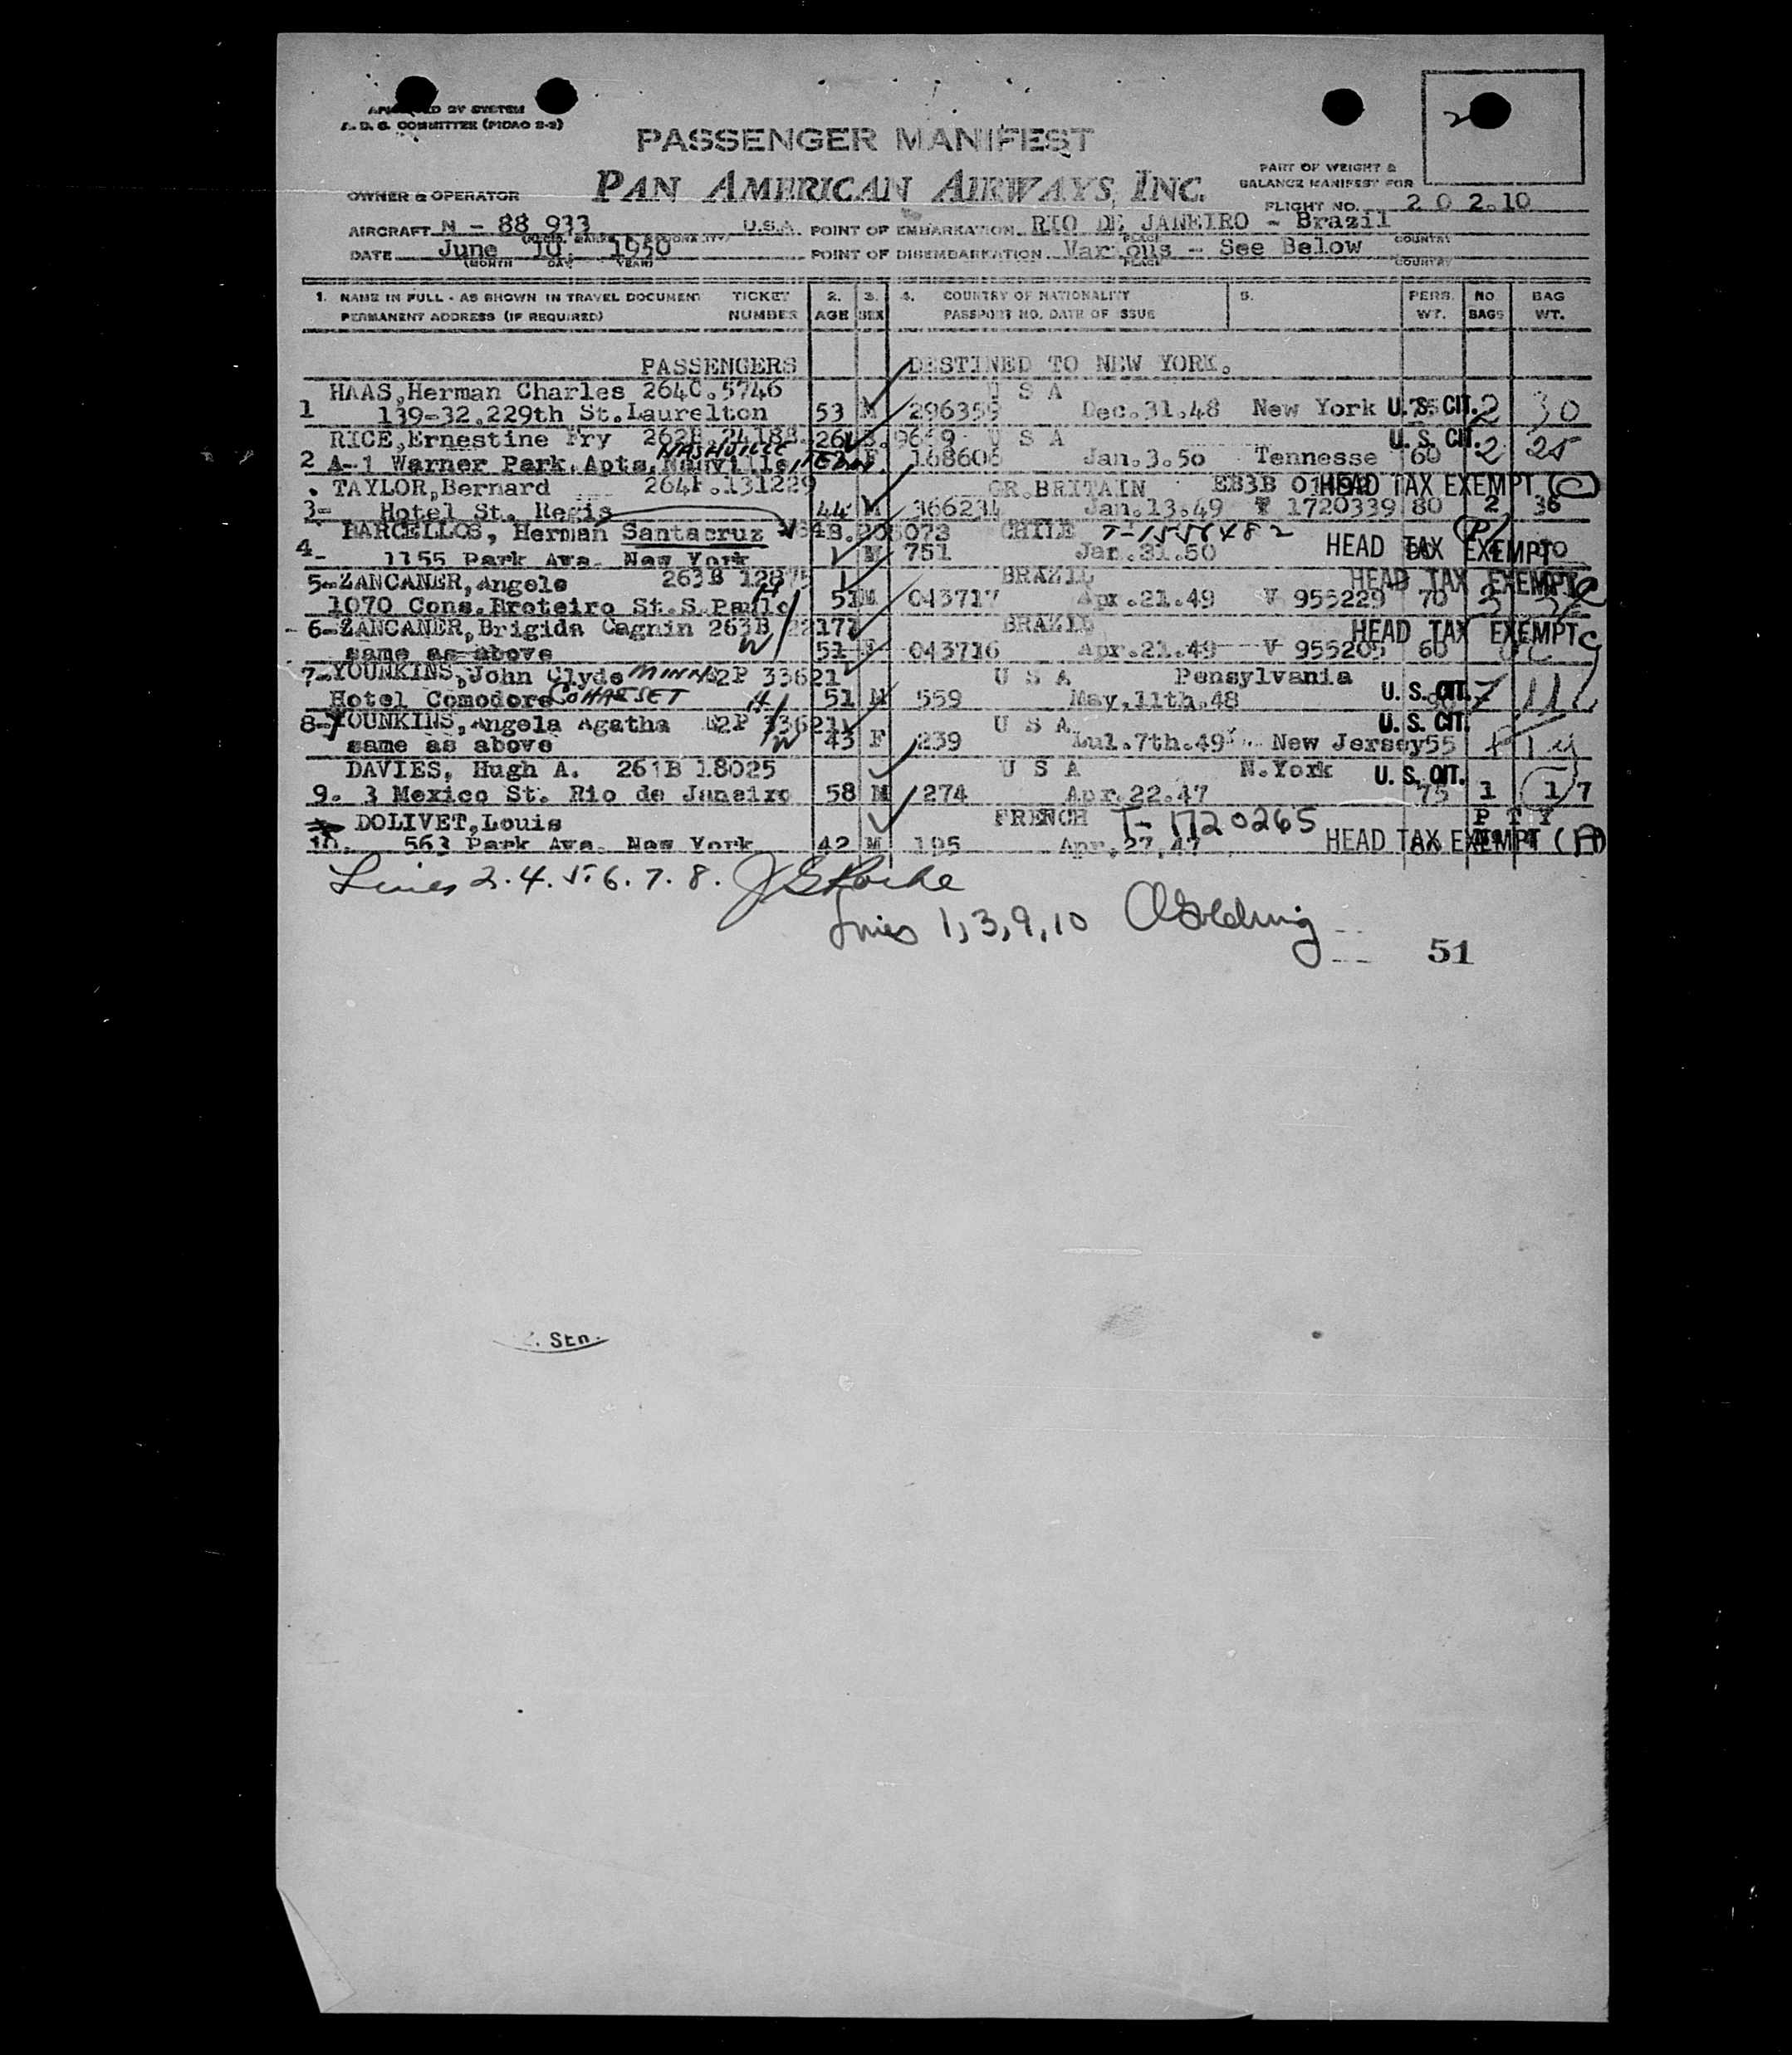 BY SYSTEM
COMMITTEE (PIDAO 2-2)
2
PASSENGER MANIFEST
PART OF WEIGHT &
BALANCE MANIFEST FOR
OWNER & OPERATOR
PAN AMERICAN AIRWAYS, INC.
FLIGHT NO. 2 0 2.10
AIRCRAFT N - 88 933 U.S.A. POINT OF EMBARKATION RIO DE JANEIRO - Brazil
DATE June 10. 1950 POINT OF DISEMBARKATION Various - See Below
(MONTH DAY YEAR) PLACE COUNTRY
1. NAME IN FULL - AS SHOWN IN TRAVEL DOCUMENT TICKET 2. 3. 4. COUNTRY OF NATIONALITY 5. PERS. NO. BAG
PERMANENT ADDRESS (IF REQUIRED) NUMBER AGE SEX PASSPORT NO. DATE OF ISSUE WT. BAGS WT.
PASSENGERS DESTINED TO NEW YORK.
HAAS, Herman Charles 264C.5746 U S A
1 139-32.229th St. Laurelton 53 M 296359 Dec.31.48 New York U.S. CIT. 2 30
RICE, Ernestine Fry U S A U. S. CIT.
NASHVILLE
2 A-1 Warner Park. Apts. F 168606 Jan.3.50 Tennesse 60 2 25
TAYLOR, Bernard 264F.131229 GR.BRITAIN HEAD TAX EXEMPT
3- Hotel St. Regis 44 M 366234 Jan.13.49 1720339 80 2 36
BARCELLOS, Herman Santacruz CHILE
4- 1155 Park Ava. New York M 751 Jan.31.50 HEAD TAX EXEMPT
5- ZANCANER, Angelo 263B BRAZIL HEAD TAX EXEMPT
H
1070 Cons. Broteiro St. S. Paulo 51 M 043717 Apr.21.49 V 955229 70
6- ZANCANER, Brigida Cagnin 263B BRAZIL HEAD TAX EXEMPT
W
same as above 51 F 043716 Apr.21.49 V 955205 60
7- YOUNKINS, John Clyde MINN 33621 U S A Pensylvania
Hotel Comodore COHASSET H 51 M 559 May.11th.48 U. S. CIT.
8- YOUNKINS, Angela Agatha 33621 U S A U. S. CIT.
W
same as above 43 F 239 Lul.7th.49 New Jersey 55
DAVIES, Hugh A. 261B 18025 U S A N.York U. S. CIT.
9. 3 Mexico St. Rio de Janeiro 58 M 274 Apr.22.47 75 1 17
DOLIVET, Louis FRENCH T- 1720265 P T Y
10. 563 Park Ava. New York 42 M 195 Apr.27.47 HEAD TAX EXEMPT (A)
Lines 2. 4. 5. 6. 7. 8.
Lines 1, 3, 9, 10 Golding
51